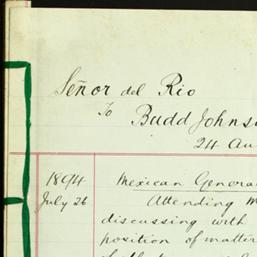 Señor del Rio
To
Budd Johns
24 Au
1894
Mexican Genera
July 26
Attending M
discussing with
position of matter